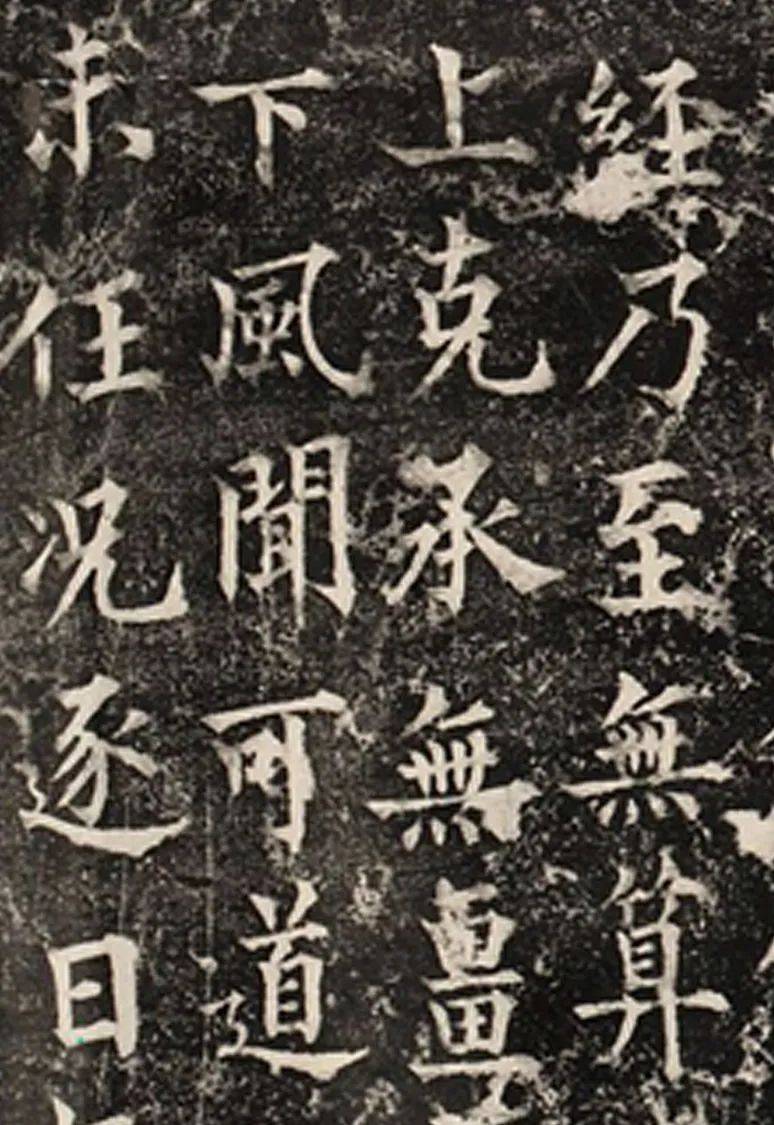 経乃至無算
上克承無畺
下風聞可道
未任況逐日